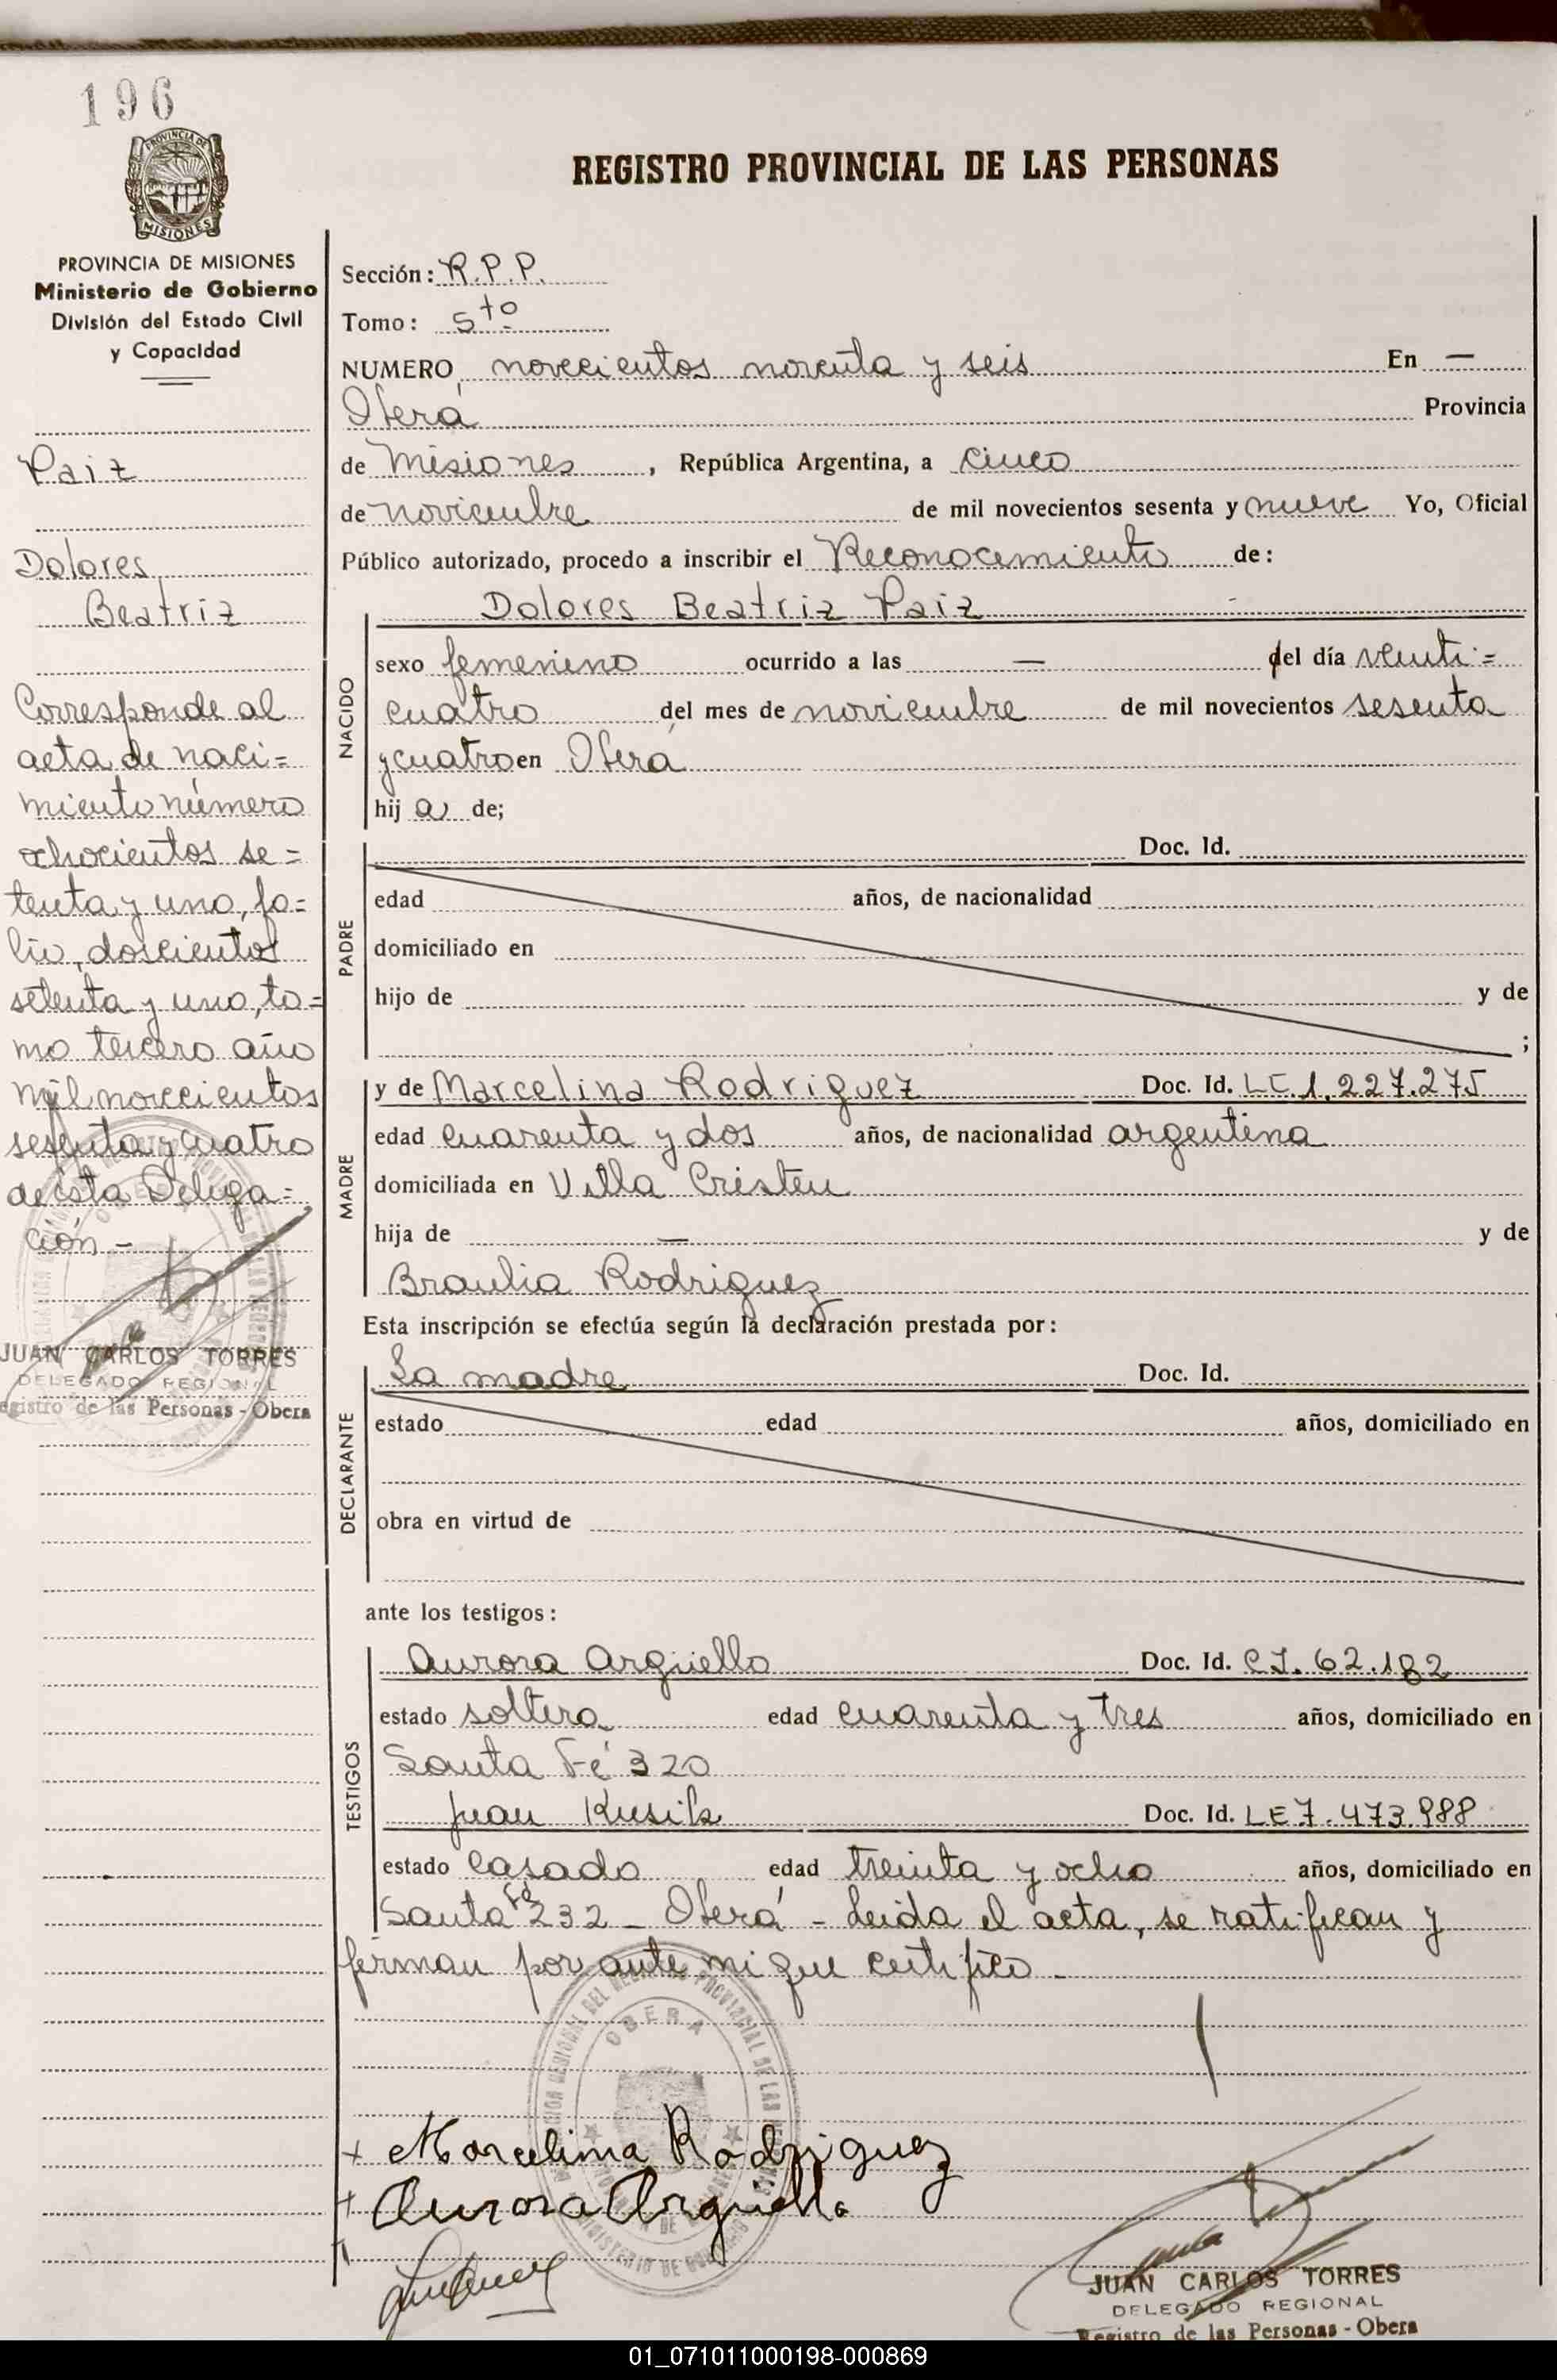 196
PROVINCIA DE
MISIONES
REGISTRO PROVINCIAL DE LAS PERSONAS
PROVINCIA DE MISIONES
Ministerio de Gobierno
División del Estado Civil
y Capacidad
Paiz
Dolores
Beatriz
Corresponde al
acta de naci=
miento número
ochocientos se=
tenta y uno, fo=
lio, doscientos
setenta y uno, to=
mo tercero año
mil novecientos
sesenta y cuatro
de esta Delega=
ción -
JUAN CARLOS TORRES
DELEGADO REGIONAL
egistro de las Personas - Obera
Sección: R.P.P.
Tomo: 5to
NUMERO, novecientos noventa y seis En —
Oberá Provincia
de Misiones, República Argentina, a cinco
de noviembre de mil novecientos sesenta y nueve Yo, Oficial
Público autorizado, procedo a inscribir el Reconocimiento de:
Dolores Beatriz Paiz
NACIDO
sexo femenino ocurrido a las — del día venti=
cuatro del mes de noviembre de mil novecientos sesenta
y cuatro en Oberá
hij a de;
PADRE
Doc. Id.
edad años, de nacionalidad
domiciliado en
hijo de y de
;
MADRE
y de Marcelina Rodriguez Doc. Id. LC.1.227.275
edad cuarenta y dos años, de nacionalidad argentina
domiciliada en Villa Cristen
hija de — y de
Braulia Rodriguez
Esta inscripción se efectúa según la declaración prestada por:
DECLARANTE
La madre Doc. Id.
estado edad años, domiciliado en
obra en virtud de
ante los testigos:
TESTIGOS
Aurora Argüello Doc. Id. CI. 62.182
estado soltera edad cuarenta y tres años, domiciliado en
Santa Fé 320
Juan Kusik Doc. Id. LE 7.473.988
estado casado edad treinta y ocho años, domiciliado en
Santa Fé 232 - Oberá - Leida el acta, se ratifican y
firman por ante mi que certifico -
OBERA
+ Marcelima Rodriguez
+ Aurora Arguello
JUAN CARLOS TORRES
DELEGADO REGIONAL
Registro de las Personas - Obera
01_071011000198-000869